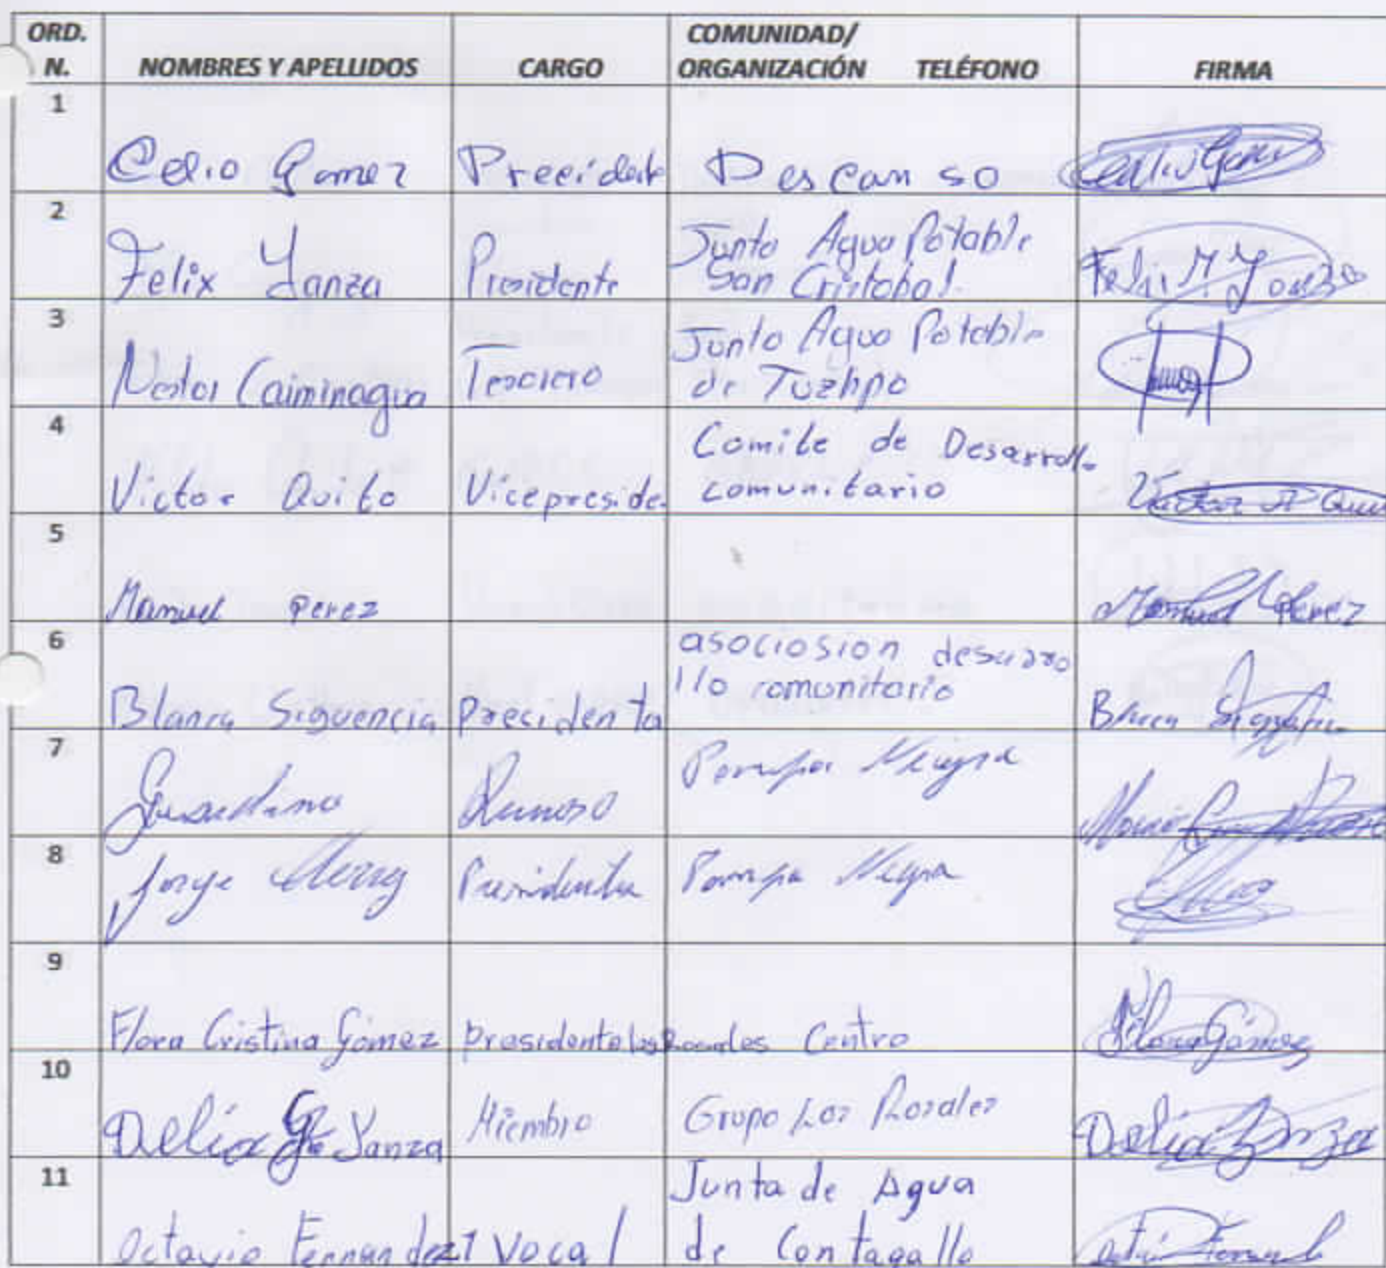 ORD. N. NOMBRES Y APELLIDOS CARGO COMUNIDAD/ ORGANIZACIÓN TELÉFONO FIRMA
1 Celio Gomez Preeidente Descanso
2 Felix Yanza Presidente Junta Agua Potable San Cristobal. Felix M. Yanza
3 Nestor Caiminagua Tesorero Junta Agua Potable de Tuzhpo
4 Victor Quito Vicepreside. Comite de Desarrollo comunitario Victor
5 Manuel perez Manuel Perez
6 Blanca Siguencia presidenta asociosion desarro llo comunitario
7 Pampa Negra
8 Jorge Presidente Pampa Negra
9 Flora Cristina Gómez Presidenta los Rosales Centro Flora Gómez
10 Delia Yanza Miembro Grupo Los Rosales Delia Yanza
11 Octavio Fernandez 1 Vocal Junta de Agua de Contagallo